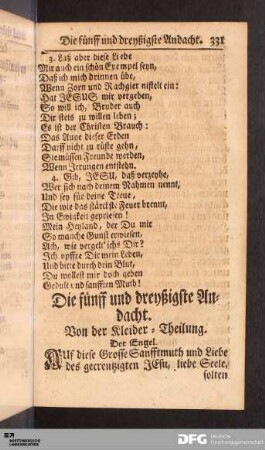 Die fünff und dreyßigste Andacht. 331
3. Laß aber diese Liebe
Mir auch ein schön Exempel seyn,
Daß ich mich drinnen übe,
Wenn Zorn und Rachgier nistelt ein:
Hat JESUS mir vergeben,
So will ich, Bruder auch
Dir stets zu willen leben;
Es ist der Christen Brauch:
Das Auge dieser Erden
Darff nicht zu rüste gehn,
Sie müssen Freunde werden,
Wenn Jrrungen entstehn.
4. Gib, JESU, daß verzeyhe,
Wer sich nach deinem Nahmen nennt,
Und sey für deine Treue,
Die wie das stärckste Feuer brennt,
In Ewigkeit gepriesen!
Mein Heyland, der Du mir
So manche Gunst erwiesen,
Ach, wie vergelt' ichs Dir?
Ich opffre Dir mein Leben,
Und bitte durch dein Blut,
Du wollest mir doch geben
Gedult und sanfften Muth!
Die fünff und dreyßigste An-
dacht.
Von der Kleider-Theilung.
Der Engel.
AUf diese Grosse Sanfftmuth und Liebe
des gecreutzigten JEsu, liebe Seele,
solten
DFG Deutsche
Forschungsgemeinschaft